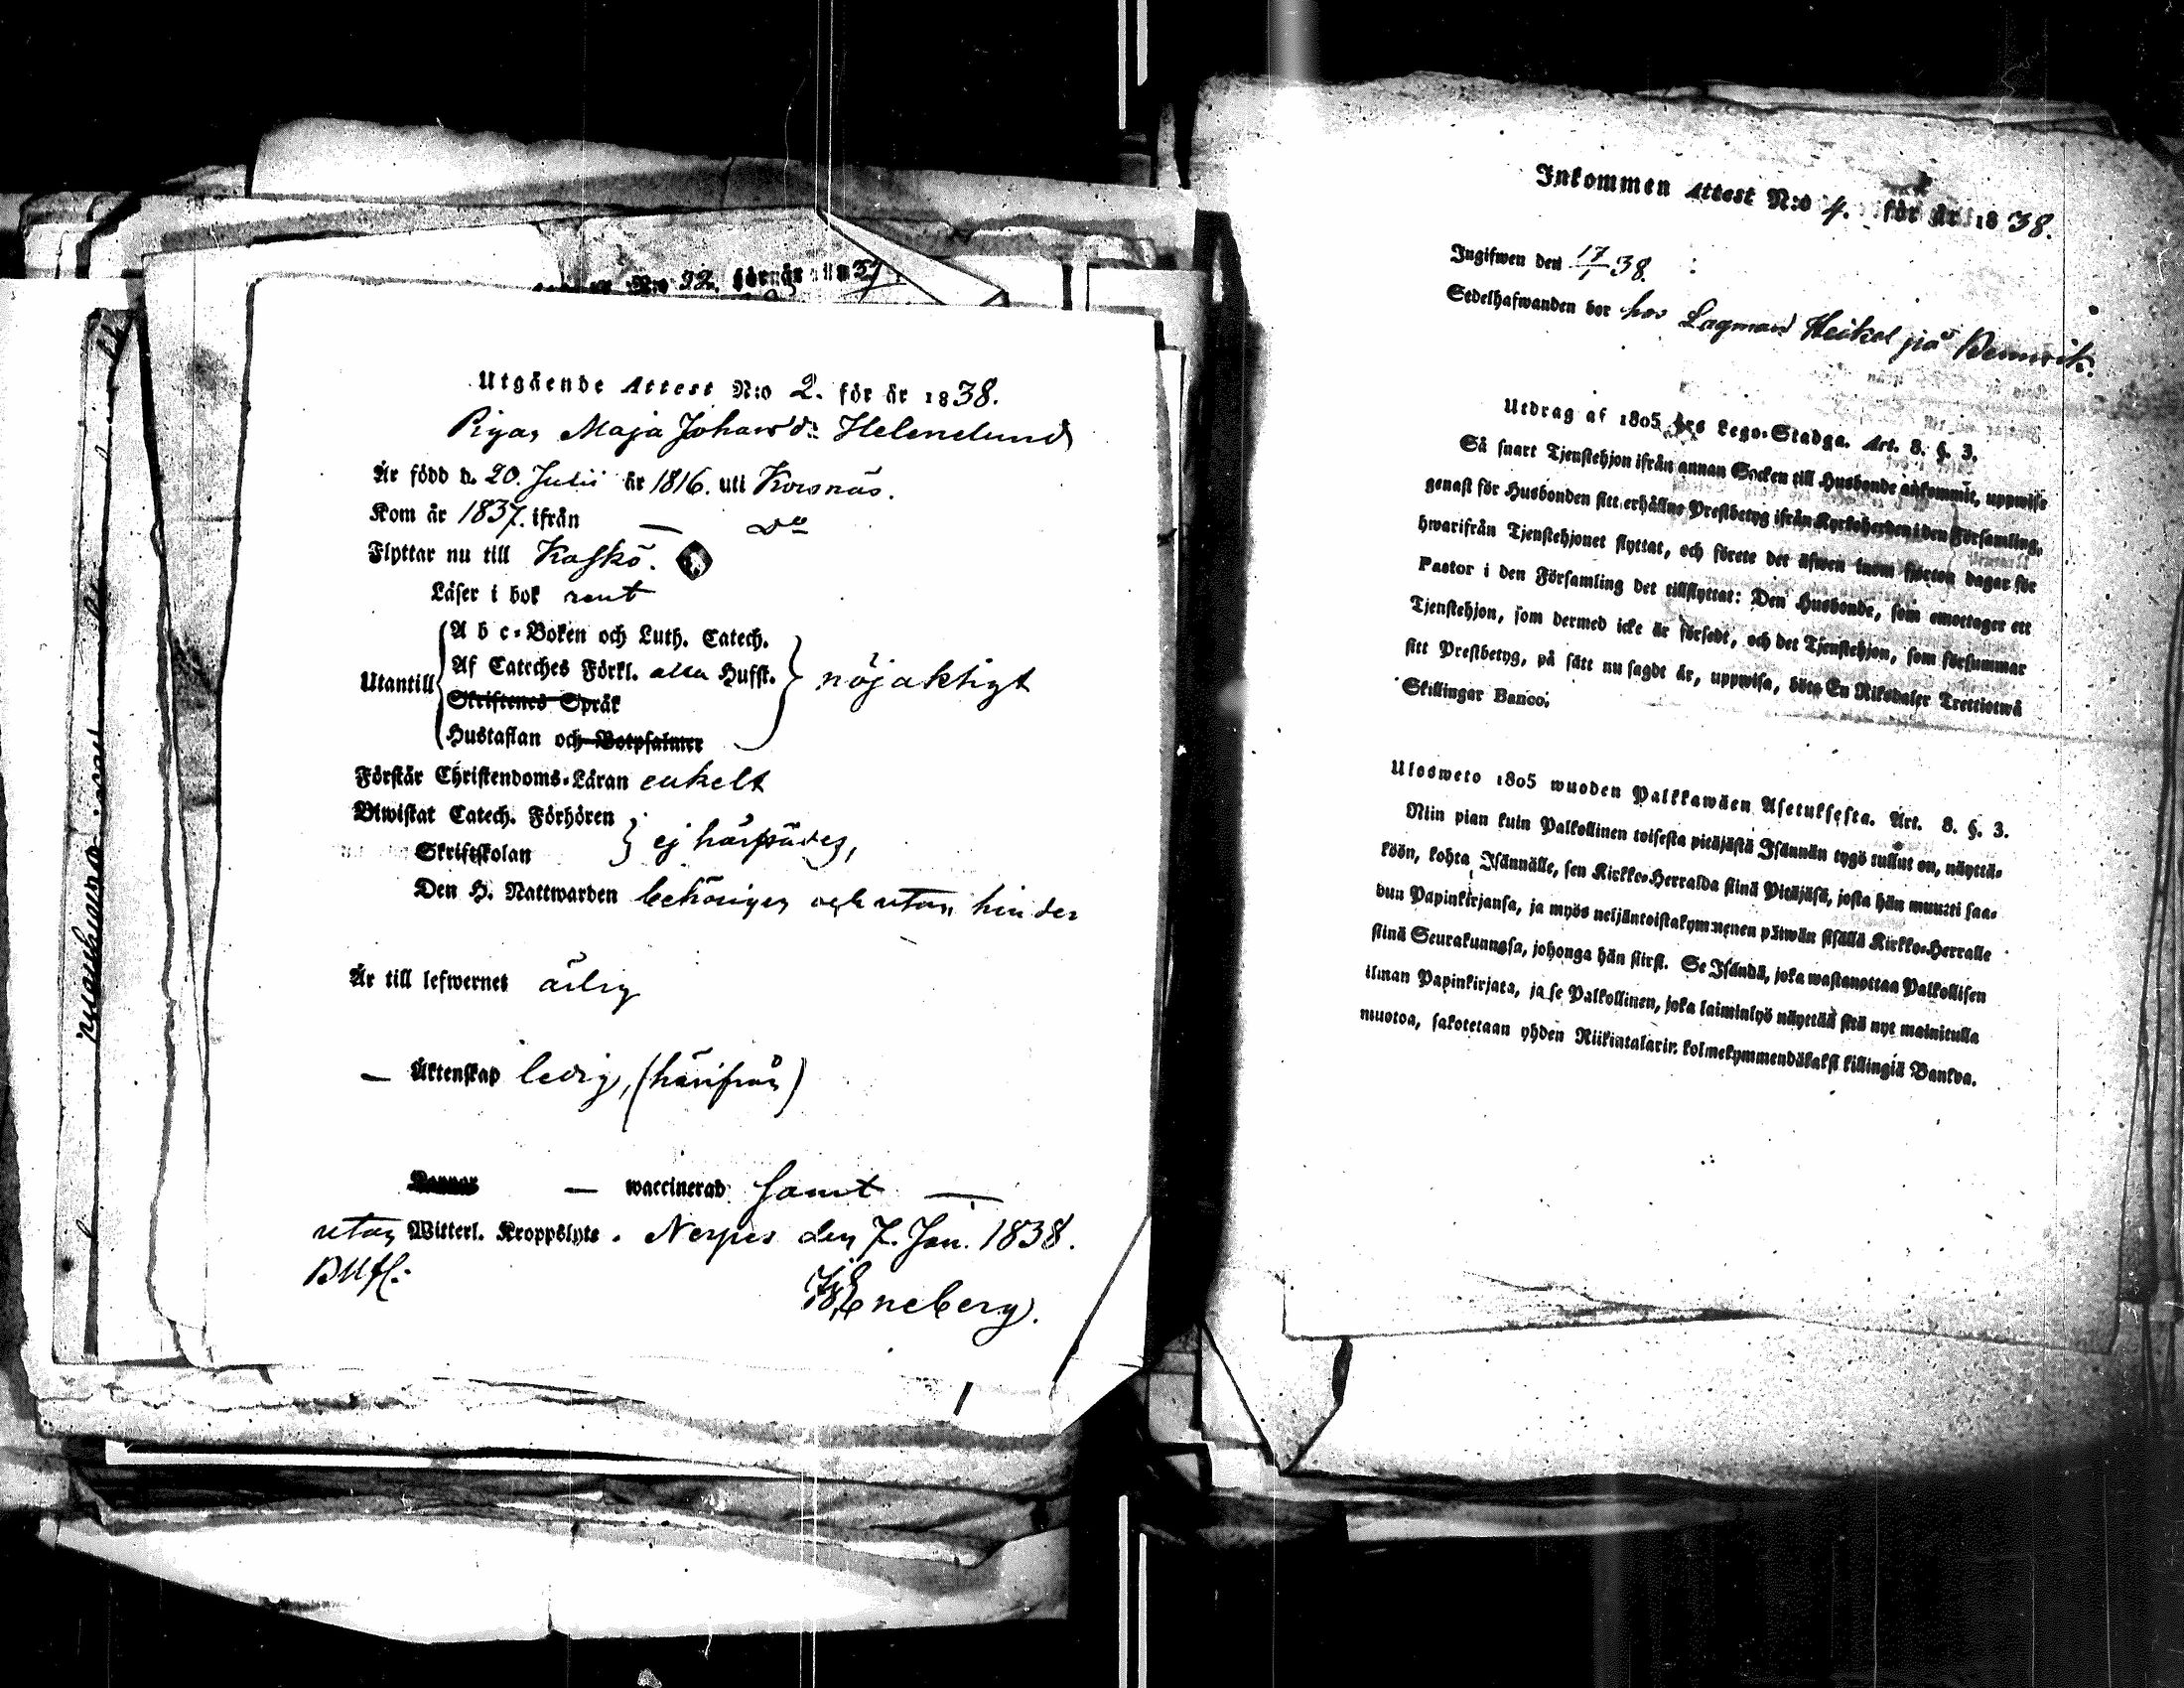 N:o 32. för år 1837.
Utgående Attest N:o 2. för år 1838.
Pigan Maja Johansd:r Helenelund
Är född d. 20. Julii år 1816. uti Korsnäs.
Kom år 1837. ifrån — D:o
Flyttar nu till Kaskö.
Läser i bok rent
Utantill
A b c-Boken och Luth. Catech.
Af Cateches Förkl. alla Hufst.
Skriftenes Språk
Hustaflan och Botpsalmer
nöjaktigt
Förstår Christendoms-Läran enkelt
Biwistat Catech. Förhören
Skriftskolan
ej härstädes,
Den H. Nattwarden behörigen och utan hinder
Är till lefwernet ärlig
— Äktenskap ledig, (härifrån)
— waccinerad samt —
utan Witterl. Kroppslyte. Nerpes den 7. Jan. 1838.
Eneberg.
Inkommen Attest N:o 4. för år 1838.
Ingifwen den 17/1 38.
Sedelhafwanden bor hos Lagman Heikel på Bennvik.
Utdrag af 1805 års Lego-Stadga. Art. 8. §. 3.
Så snart Tjenstehjon ifrån annan Socken till Husbonde ankommit, uppwise
genast för Husbonden sitt erhållne Prestbetyg ifrån Kyrkoherden i den Församling,
hwarifrån Tjenstehjonet flyttat, och förete det äfwen inom fjorton dagar för
Pastor i den Församling det tillflyttat: Den Husbonde, som emottager ett
Tjenstehjon, som dermed icke är försedt, och det Tjenstehjon, som försummar
sitt Prestbetyg, på sätt nu sagdt är, uppwisa, böte En Riksdaler Trettiotwå
Skillingar Banco.
Ulosweto 1805 wuoden Palkkawäen Asetuksesta. Art. 8. §. 3.
Niin pian kuin Palkollinen toisesta pitäjästä Isännän tygö tullut on, näyttä-
köön, kohta Isännälle, sen Kirkko-Herralda siinä Pitäjäsä, josta hän muutti saa-
dun Papinkirjansa, ja myös neljäntoistakymmenen päiwän sisällä Kirkko-Herralle
siinä Seurakunnasa, johonga hän siirsi. Se Isändä, joka wastanottaa Palkollisen
ilman Papinkirjata, ja se Palkollinen, joka laiminlyö näyttää sitä nyt mainitulla
muotoa, sakotetaan yhden Riikintalarin kolmekymmendäkaksi killingiä Bankoa.